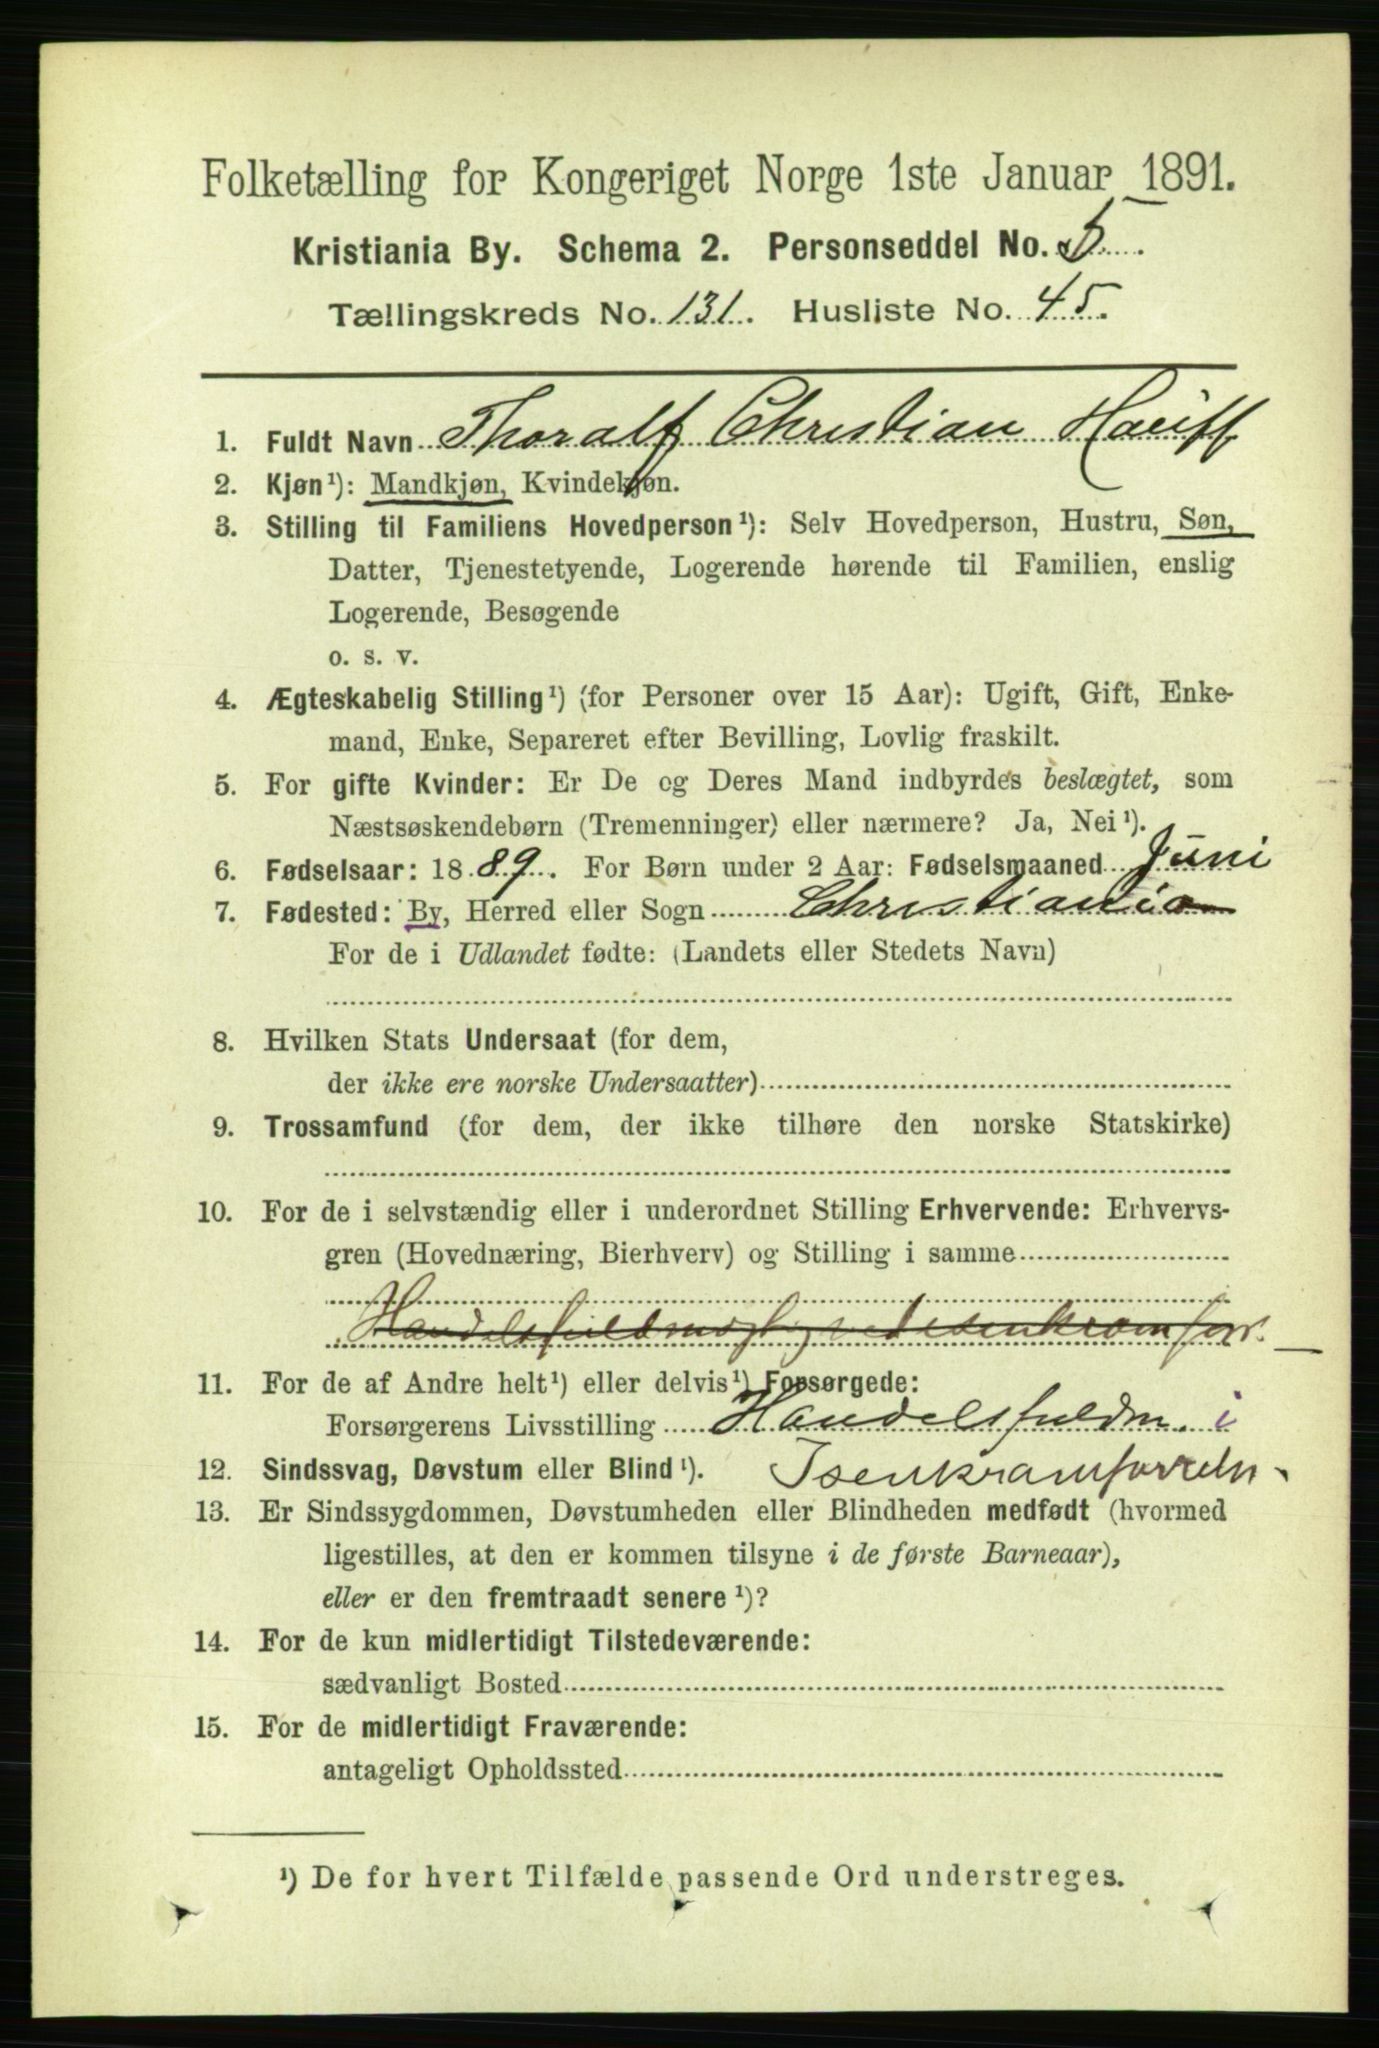 Folketælling for Kongeriget Norge 1ste Januar 1891.
Kristiania By. Schema 2. Personseddel No. 5
Tællingskreds No. 131. Husliste No. 45.
1. Fuldt Navn Thoralf Christian Hauff
2. Kjøn¹): Mandkjøn, Kvindekjøn.
3. Stilling til Familiens Hovedperson¹): Selv Hovedperson, Hustru, Søn,
Datter, Tjenestetyende, Logerende hørende til Familien, enslig
Logerende, Besøgende
o. s. v.
4. Ægteskabelig Stilling¹) (for Personer over 15 Aar): Ugift, Gift, Enke-
mand, Enke, Separeret efter Bevilling, Lovlig fraskilt.
5. For gifte Kvinder: Er De og Deres Mand indbyrdes beslægtet, som
Næstsøskendebørn (Tremenninger) eller nærmere? Ja, Nei¹).
6. Fødselsaar: 1889. For Børn under 2 Aar: Fødselsmaaned Juni
7. Fødested: By, Herred eller Sogn Christiania
For de i Udlandet fødte: (Landets eller Stedets Navn)
8. Hvilken Stats Undersaat (for dem,
der ikke ere norske Undersaatter)
9. Trossamfund (for dem, der ikke tilhøre den norske Statskirke)
10. For de i selvstændig eller i underordnet Stilling Erhvervende: Erhvervs-
gren (Hovednæring, Bierhverv) og Stilling i samme
Handelsfuldmægtig ved Isenkramforr.
11. For de af Andre helt¹) eller delvis¹) Forsørgede:
Forsørgerens Livsstilling Handelsfuldm. i
12. Sindssvag, Døvstum eller Blind¹). Isenkramforretn.
13. Er Sindssygdommen, Døvstumheden eller Blindheden medfødt (hvormed
ligestilles, at den er kommen tilsyne i de første Barneaar),
eller er den fremtraadt senere¹)?
14. For de kun midlertidigt Tilstedeværende:
sædvanligt Bosted
15. For de midlertidigt Fraværende:
antageligt Opholdssted
¹) De for hvert Tilfælde passende Ord understreges.